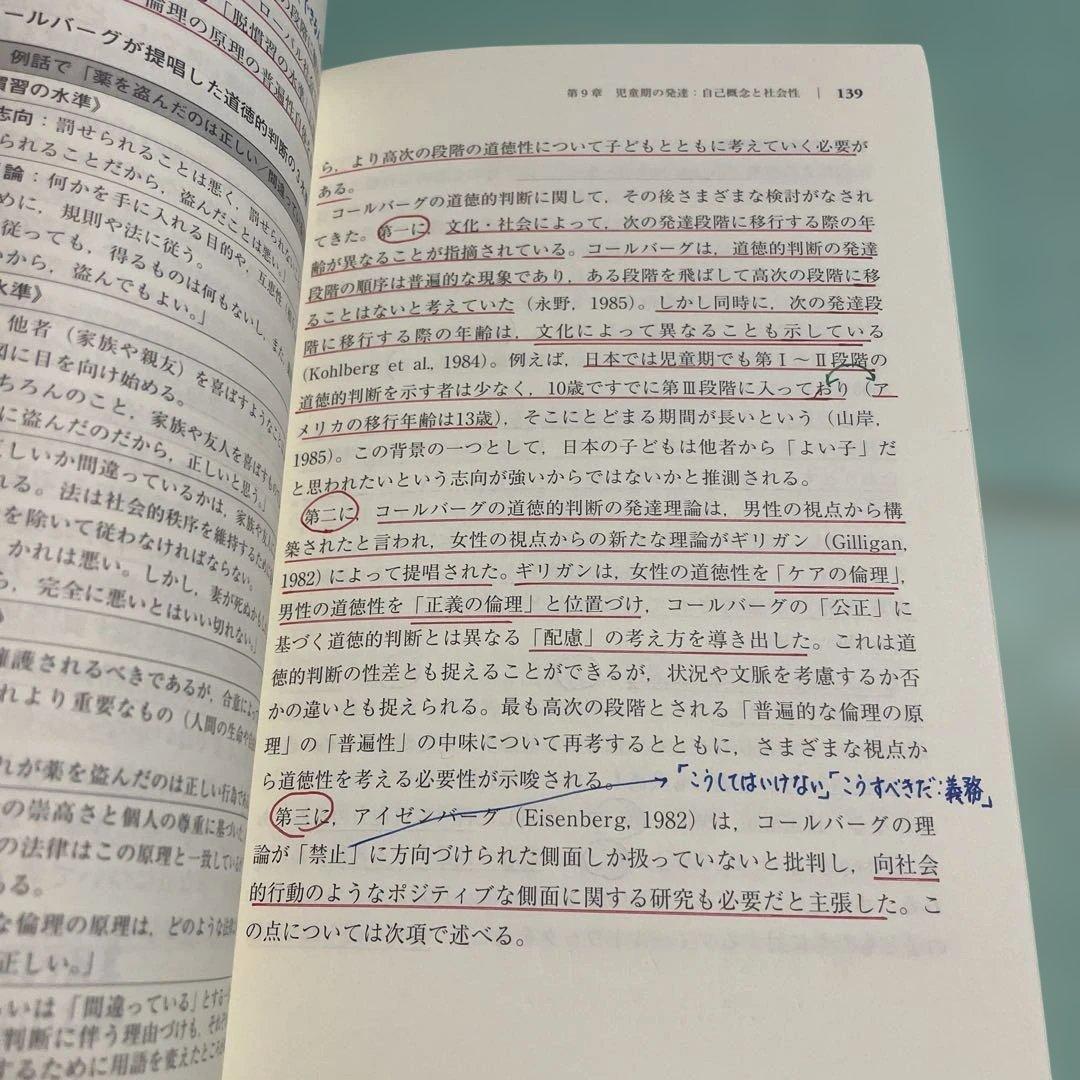 ーバル社会
「脱慣習の水準
倫理の原理の普遍性自体
コールバーグが提唱した道徳的判断の3
例話で「薬を盗んだのは正しい／間違って
慣習の水準》
志向：罰せられることは悪く，罰せられない
られることだから，盗んだことは悪い。」
論：何かを手に入れる目的や，互恵性
めに，規則や法に従う。
従っても，得るものは何もないし，また，
から，盗んでもよい。」
水準》
他者（家族や親友）を喜ばすようなこと
図に目を向け始める。
ちろんのこと，家族や友人を喜ばすもの
に盗んだのだから，正しいと思う。」
正しいか間違っているかは，家族や友人に
れる。法は社会的秩序を維持するために
を除いて従わなければならない。
かれは悪い。しかし，妻が死ぬかも
ら，完全に悪いとはいい切れない。」
擁護されるべきであるが，合意によっ
れより重要なもの（人間の生命や
れが薬を盗んだのは正しい行為で
の崇高さと個人の尊重に基づいた
の法律はこの原理と一致している
ある。
な倫理の原理は，どのような法
正しい。」
いは「間違っている」とする
判断に伴う理由づけも，それぞ
するために用語を変えたところ
第9章　児童期の発達：自己概念と社会性　｜　139
ら，より高次の段階の道徳性について子どもとともに考えていく必要が
ある。
コールバーグの道徳的判断に関して，その後さまざまな検討がなされ
てきた。第一に，文化・社会によって，次の発達段階に移行する際の年
齢が異なることが指摘されている。コールバーグは，道徳的判断の発達
段階の順序は普遍的な現象であり，ある段階を飛ばして高次の段階に移
ることはないと考えていた（永野，1985）。しかし同時に，次の発達段
階に移行する際の年齢は，文化によって異なることも示している
(Kohlberg et al., 1984)。例えば，日本では児童期でも第Ⅰ～Ⅱ段階の
道徳的判断を示す者は少なく，10歳ですでに第Ⅲ段階に入っており（ア
メリカの移行年齢は13歳），そこにとどまる期間が長いという（山岸，
1985）。この背景の一つとして，日本の子どもは他者から「よい子」だ
と思われたいという志向が強いからではないかと推測される。
第二に，コールバーグの道徳的判断の発達理論は，男性の視点から構
築されたと言われ，女性の視点からの新たな理論がギリガン（Gilligan,
1982）によって提唱された。ギリガンは，女性の道徳性を「ケアの倫理」，
男性の道徳性を「正義の倫理」と位置づけ，コールバーグの「公正」に
基づく道徳的判断とは異なる「配慮」の考え方を導き出した。これは道
徳的判断の性差とも捉えることができるが，状況や文脈を考慮するか否
かの違いとも捉えられる。最も高次の段階とされる「普遍的な倫理の原
理」の「普遍性」の中味について再考するとともに，さまざまな視点か
ら道徳性を考える必要性が示唆される。
「こうしてはいけない」「こうすべきだ：義務」
第三に，アイゼンバーグ（Eisenberg, 1982）は，コールバーグの理
論が「禁止」に方向づけられた側面しか扱っていないと批判し，向社会
的行動のようなポジティブな側面に関する研究も必要だと主張した。こ
の点については次項で述べる。